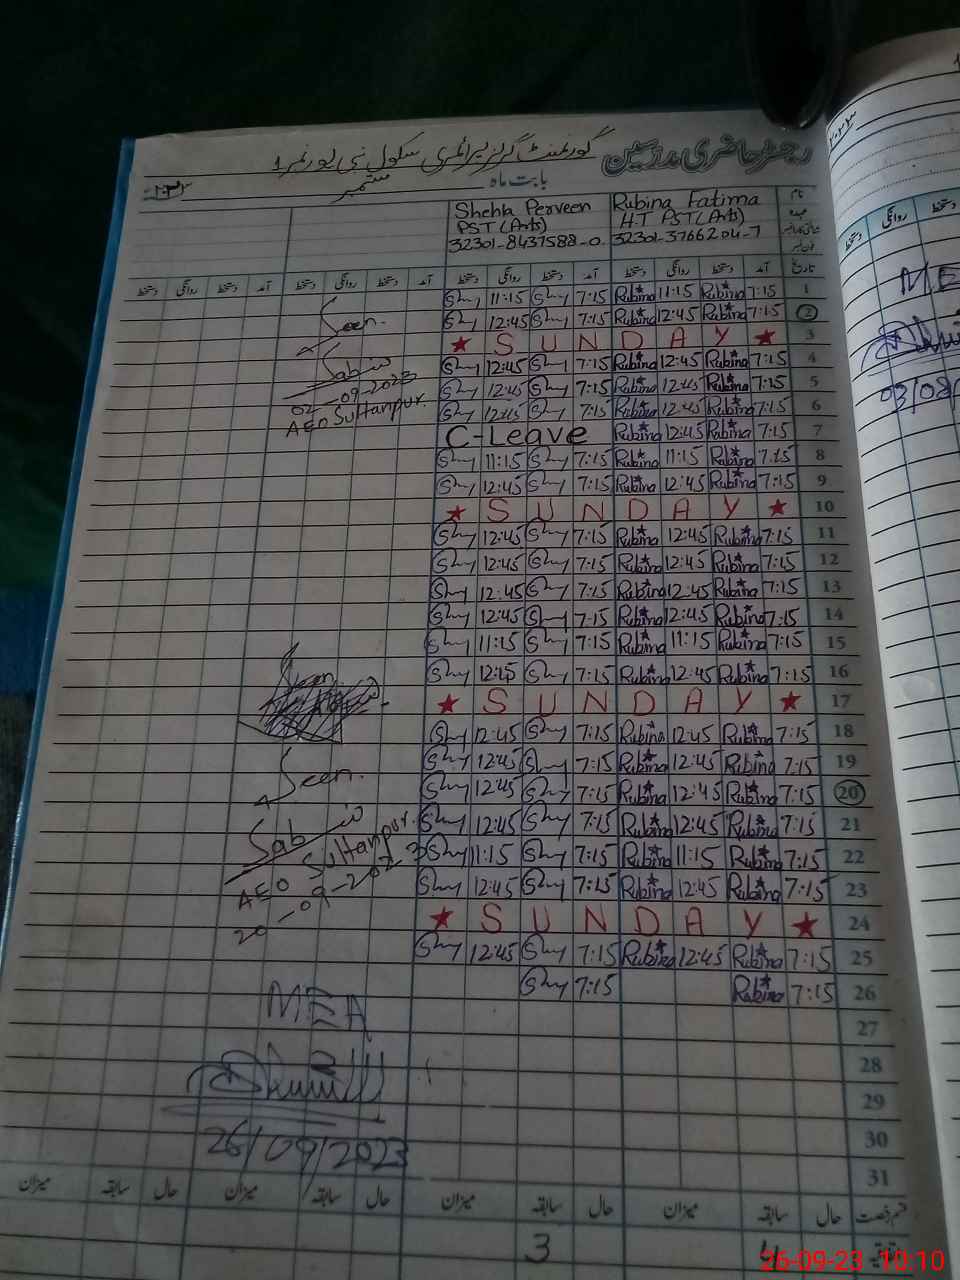 رجسٹر حاضری مدرسین گورنمنٹ گرلز پرائمری سکول نبی پور نمبر 1
بابت ماہ ستمبر
نام Rubina Fatima Shehla Perveen
عہدہ H.T PST(Arts) PST(Arts)
32301-3766204-7 32301-8437588-0
تاریخ آمد دستخط روانگی دستخط آمد دستخط روانگی دستخط آمد دستخط روانگی دستخط آمد دستخط روانگی دستخط
1 7:15 Rubina 11:15 Rubina 7:15 Shy 11:15 Shy
2 7:15 Rubina 12:45 Rubina 7:15 Shy 12:45 Shy
3 SUNDAY
4 7:15 Rubina 12:45 Rubina 7:15 Shy 12:45 Shy
5 7:15 Rubina 12:45 Rubina 7:15 Shy 12:45 Shy
6 7:15 Rubina 12:45 Rubina 7:15 Shy 12:45 Shy
7 7:15 Rubina 12:45 Rubina C-Leave
8 7:15 Rubina 11:15 Rubina 7:15 Shy 11:15 Shy
9 7:15 Rubina 12:45 Rubina 7:15 Shy 12:45 Shy
10 SUNDAY
11 7:15 Rubina 12:45 Rubina 7:15 Shy 12:45 Shy
12 7:15 Rubina 12:45 Rubina 7:15 Shy 12:45 Shy
13 7:15 Rubina 12:45 Rubina 7:15 Shy 12:45 Shy
14 7:15 Rubina 12:45 Rubina 7:15 Shy 12:45 Shy
15 7:15 Rubina 11:15 Rubina 7:15 Shy 11:15 Shy
16 7:15 Rubina 12:45 Rubina 7:15 Shy 12:45 Shy
17 SUNDAY
18 7:15 Rubina 12:45 Rubina 7:15 Shy 12:45 Shy
19 7:15 Rubina 12:45 Rubina 7:15 Shy 12:45 Shy
20 7:15 Rubina 12:45 Rubina 7:15 Shy 12:45 Shy
21 7:15 Rubina 12:45 Rubina 7:15 Shy 12:45 Shy
22 7:15 Rubina 11:15 Rubina 7:15 Shy 11:15 Shy
23 7:15 Rubina 12:45 Rubina 7:15 Shy 12:45 Shy
24 SUNDAY
25 7:15 Rubina 12:45 Rubina 7:15 Shy 12:45 Shy
26 7:15 Rubina 7:15 Shy
27
28
29
30
31
قسم رخصت حال سابقہ میزان حال سابقہ میزان حال سابقہ میزان حال سابقہ میزان
4 3
Seen.
Sabir
02-09-2023
AEO Sultanpur.
Seen.
Sabir
AEO Sultanpur.
20-09-2023
MEA
26/09/2023
03/08/
26-09-23 10:10